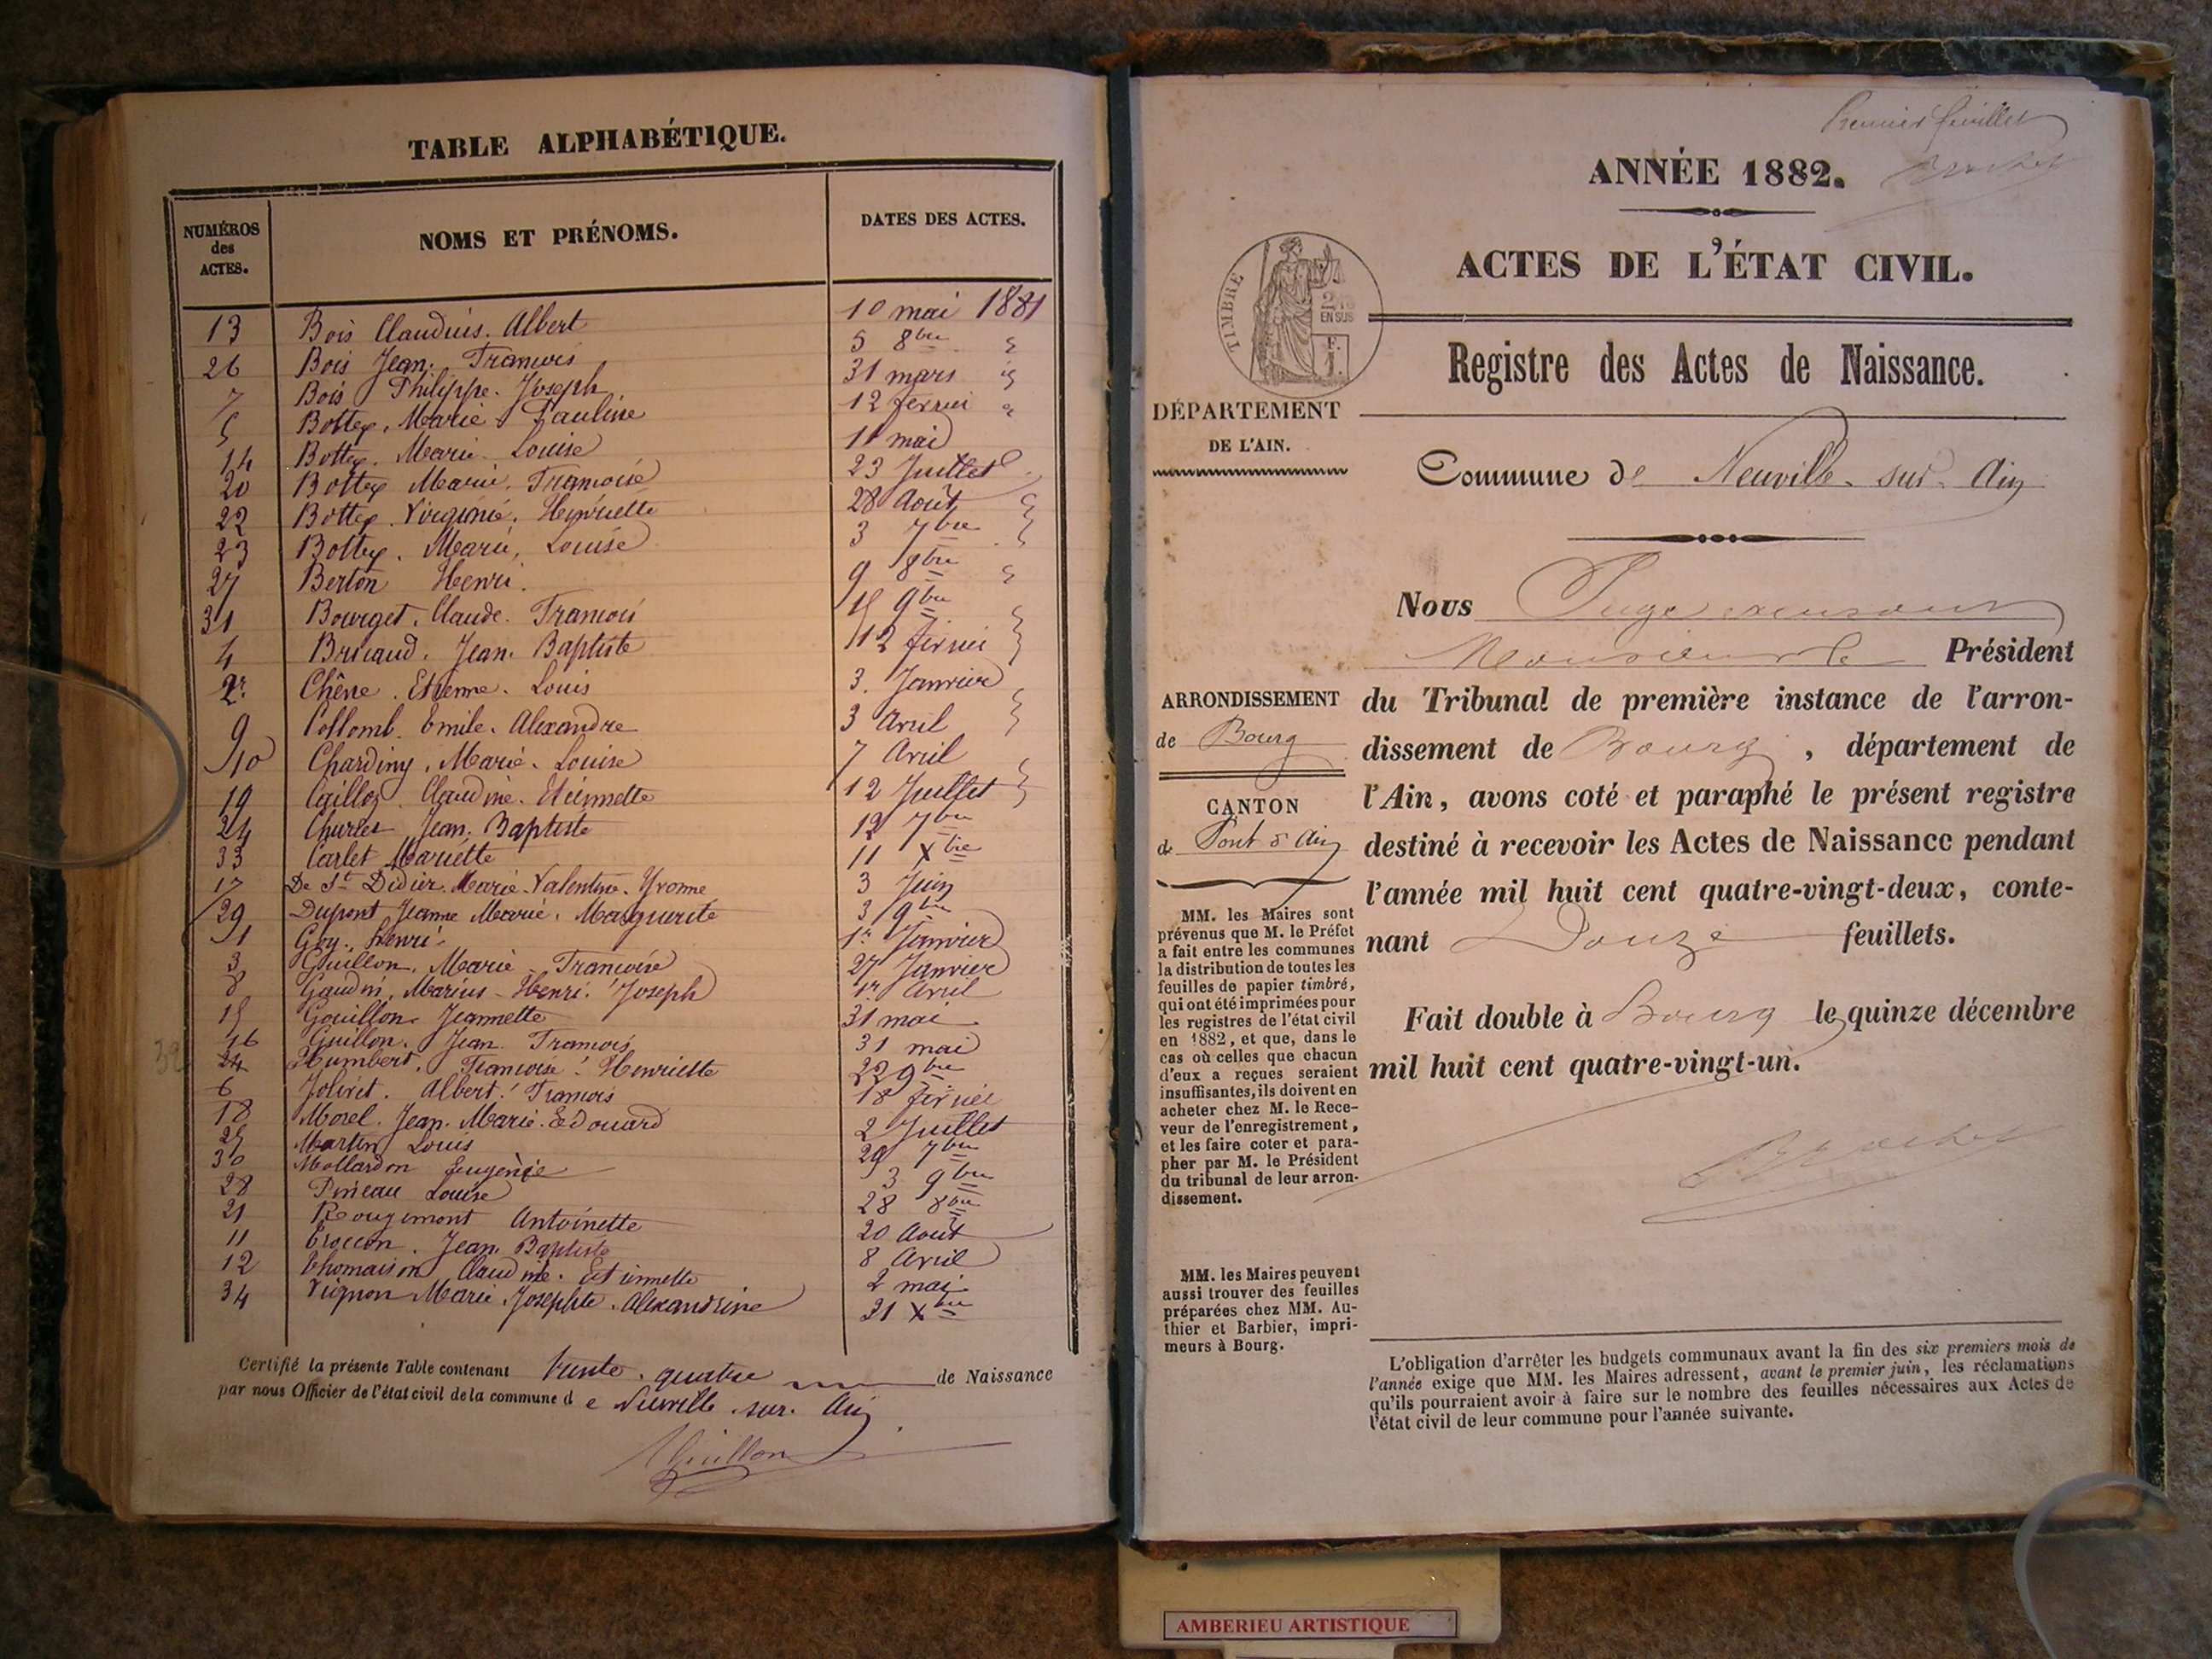 TABLE ALPHABÉTIQUE.
NUMÉROS des ACTES.
NOMS ET PRÉNOMS.
DATES DES ACTES.
13 Bois Claudius. Albert 10 mai 1881
26 Bois Jean. François 5 8bre "
7 Bois Philippe. Joseph 31 mars "
5 Bottex, Marie Pauline 12 février "
14 Bottex. Marie. Louise 11 mai
20 Bottex Marie. Françoise 23 Juillet
22 Bottex. Virginie. Henriette 28 Août "
23 Bottex. Marie, Louise 3 7bre "
27 Berton Henri. 9 8bre "
31 Bourget. Claude. François 9bre "
4 Bricaud. Jean. Baptiste 12 février "
2 Chêne. Etienne. Louis 3. Janvier "
9 Collomb. Emile. Alexandre 3 Avril "
10 Chardiny. Marie. Louise 7 Avril
19 Cailloz. Claudine. Etiennette 12 Juillet "
24 Charles Jean. Baptiste 12 7bre
33 Carlet Mariette 11 Xbre
17 De St Didier. Marie. Valentine. Yvonne 3 Juin
29 Dupont Jeanne Marie. Marguerite 3 9bre
1 Goy. Henri 1r Janvier
3 Guillon. Marie Françoise 27 Janvier
8 Gaudin. Marius - Henri. Joseph 1r Avril
15 Gouillon Jeannette 31 mai
16 Guillon. Jean François 31 mai
32 Humbert. Françoise. Henriette 22 9bre
6 Jolivet. Albert. François 18 février
18 Morel. Jean. Marie. Edouard 2 Juillet
25 Marton Louis 29 7bre
30 Mollardon Eugénie 3 9bre
28 Pineau Louise 28 8bre
21 Rougemont Antoinette 20 Août
11 Troccon. Jean. Baptiste 8 Avril
12 Thomasson Claudine. Etiennette 2 mai
34 Vignon Marie. Josephte. Alexandrine 21 Xbre
Certifié la présente Table contenant trente. quatre de Naissance
par nous Officier de l'état civil de la commune d e Neuville. sur. Ain
Premier feuillet
ANNÉE 1882.
ACTES DE L'ÉTAT CIVIL.
TIMBRE
2/10 EN SUS
F. 1.
Registre des Actes de Naissance.
DÉPARTEMENT
DE L'AIN.
Commune de Neuville. sur. Ain
Nous Juge
Monsieur le Président
ARRONDISSEMENT
de Bourg
du Tribunal de première instance de l'arron-
dissement de Bourg, département de
l'Ain, avons coté et paraphé le présent registre
destiné à recevoir les Actes de Naissance pendant
l'année mil huit cent quatre-vingt-deux, conte-
nant Douze feuillets.
CANTON
de Pont d'Ain
MM. les Maires sont
prévenus que M. le Préfet
a fait entre les communes
la distribution de toutes les
feuilles de papier timbré,
qui ont été imprimées pour
les registres de l'état civil
en 1882, et que, dans le
cas où celles que chacun
d'eux a reçues seraient
insuffisantes, ils doivent en
acheter chez M. le Rece-
veur de l'enregistrement,
et les faire coter et para-
pher par M. le Président
du tribunal de leur arron-
dissement.
Fait double à Bourg le quinze décembre
mil huit cent quatre-vingt-un.
MM. les Maires peuvent
aussi trouver des feuilles
préparées chez MM. Au-
thier et Barbier, impri-
meurs à Bourg.
L'obligation d'arrêter les budgets communaux avant la fin des six premiers mois de
l'année exige que MM. les Maires adressent, avant le premier juin, les réclamations
qu'ils pourraient avoir à faire sur le nombre des feuilles nécessaires aux Actes de
l'état civil de leur commune pour l'année suivante.
AMBERIEU ARTISTIQUE